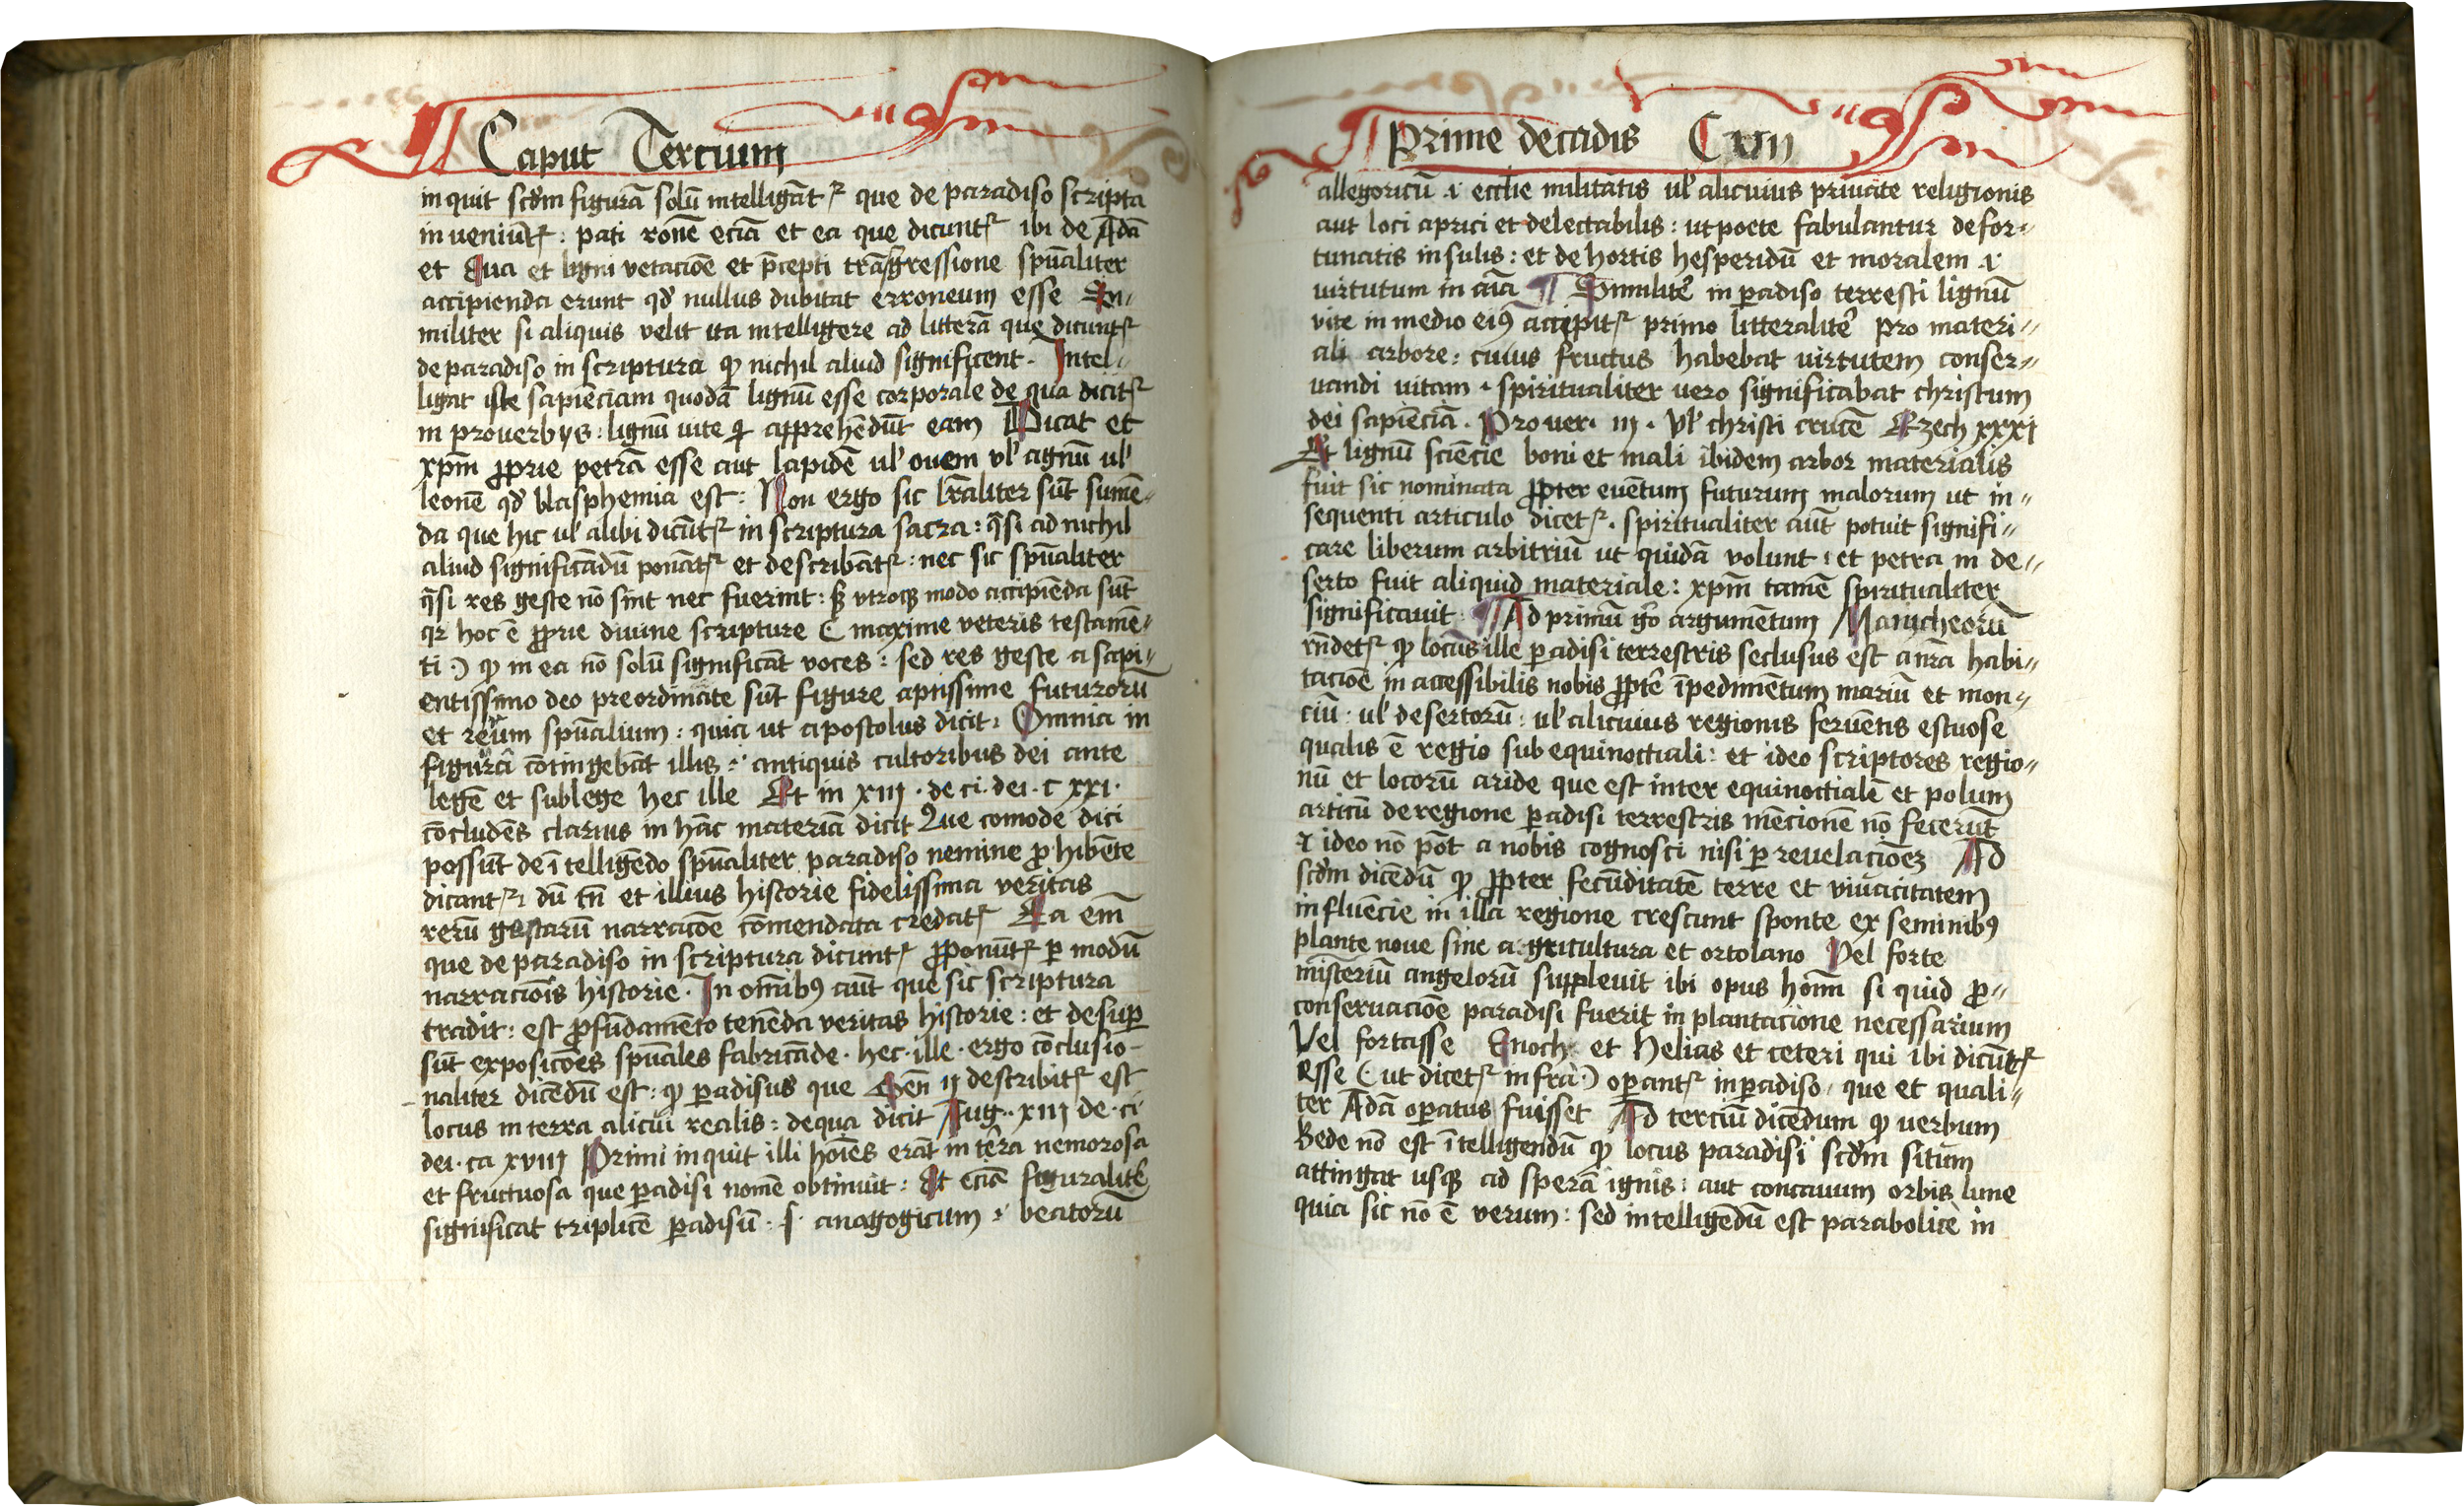 Caput Tercium
in quit scd̄m figurā solū intelligāt᷑ que de paradiso scripta
in ueniūt᷑ : pati ronē eciā et ea que dicunt᷑ ibi de Adā
et Eua et ligni vetacōe et p̄cepti trāsgressione spūaliter
accipienda erunt qd̄ nullus dubitat erroneum esse Si-
militer si aliquis velit ita intelligere ad litterā que dicunt᷑
de paradiso in scriptura ꝙ nichil aliud significent . Intel-
ligat iste sapiēciam quodā lignū esse corporale de qua dicit᷑
in proverbijs : lignū uite ꝗ apprehēdūt eam Dicat et
xp̄m ꝓprie petrā esse aut lapidē ul' ouem vl' agnū ul'
leonē qd̄ blasphemia est : Non ergo sic lr̄aliter sūt sumē-
da que hic ul' alibi dicūt᷑ in scriptura sacra : q̄si ad nichil
aliud significādū ponāt᷑ et describāt᷑ : nec sic spūaliter
q̄si res geste nō sint nec fuerint : sꝫ vtroqꝫ modo accipiēda sūt
qr hoc ē ꝓprie diuine scripture ( maxime veteris testamē-
ti :) ꝙ in ea nō solū significāt voces : sed res geste a sapi-
entissimo deo preordinate sūt figure aptissime futurorū
et rerum spūalium : quia ut apostolus dicit : Omnia in
figurā cōtingebāt illis .i. antiquis cultoribus dei ante
legē et sub lege hec ille Et in xiij . de ci. dei . c xxi .
cōcludēs clarius in hāc materiā dicit Que comode dici
possūt de ītelligēdo spūaliter paradiso nemine ꝓhibēte
dicant᷑ : dū tn̄ et illius historie fidelissima veritas
rerū gestarū narracōe cōmendata credat᷑ Ea em̄
que de paradiso in scriptura dicunt᷑ ꝓponūt᷑ ꝑ modū
narracōis historie . In om̄ibꝰ aūt que sic scriptura
tradit : est ꝓ fūdamēto tenēda veritas historie : et desuꝑ
sūt exposicōes spūales fabricāde . hec . ille . ergo cōclusio-
naliter dicēdū est : ꝙ ꝑadisus que Gen̄ ij describit᷑ est
locus in terra alicui realis : de qua dicit Aug . xiij de . ci
dei . ca xviij Primi inquit illi hoīes erāt in terra nemorosa
et fructuosa que ꝑadisi nomē obtinuit : Et eciā figuralit᷑
significat triplicē ꝑadisū . s . anagogicum .i. beatorū
Prime decadis C xvij
allegoricū .i. ecclīe militātis ul' alicuius priuate religionis
aut loci aprici et delectabilis : ut poete fabulantur de for-
tunatis insulis : et de hortis hesperidū et moralem .i.
uirtutum in aīa ¶ Similit᷑ in ꝑadiso terresti lignū
vite in medio eiꝰ accepit᷑ primo litteralit᷑ pro materi-
ali arbore : cuius fructus habebat uirtutem conser-
uandi uitam . spiritualiter uero significabat christum
dei sapiēciā . Prouer . iij . Vl' christi crucē Ezech xxxi
Et lignū sciēcie boni et mali ibidem arbor materialis
fuit sic nominata ꝓpter euētum futurum malorum ut in-
sequenti articulo dicet᷑ . spiritualiter aūt potuit signifi-
care liberum arbitriū ut quidā volunt : et petra in de-
serto fuit aliquid materiale : xp̄m tamē spiritualiter
significauit ¶ Ad primū gͦ argumētum Manicheorū
rn̄det᷑ ꝙ locus ille ꝑadisi terrestris seclusus est a nr̄a habi-
tacōe in accessibilis nobis ꝓpt᷑ īpedimētum mariū et mon-
ciū . ul' desertorū : ul' alicuius regionis feruētis estuose
qualis ē regio sub equinoctiali : et ideo scriptores regio-
nū et locorū aride que est inter equinoctialē et polum
articū de regione ꝑadisi terrestris mēcionē nō fecerūt
et ideo nō pōt a nobis cognosci nisi ꝑ reuelacōeꝫ Ad
scd̄m dicēdū ꝙ ꝓpter fecūditatē terre et viuacitatem
influēcie in illa regione crescunt sponte ex seminibꝰ
plante noue sine agricultura et ortolano Vel forte
misteriū angelorū suppleuit ibi opus hoīm si quid ꝓ-
conseruacōe paradisi fuerit in plantacione necessarium
Vel fortasse Enoch et Helias et ceteri qui ibi dicūt᷑
esse ( ut dicet᷑ infra :) oꝑant᷑ in ꝑadiso , que et quali-
ter Adā oꝑatus fuisset Ad terciū dicēdum ꝙ uerbum
Bede nō est ītelligendū ꝙ locus paradisi scd̄m situm
attingat usqꝫ ad sperā ignis : aut concauum orbis lune
quia sic nō ē verum : sed intelligēdū est parabolice in